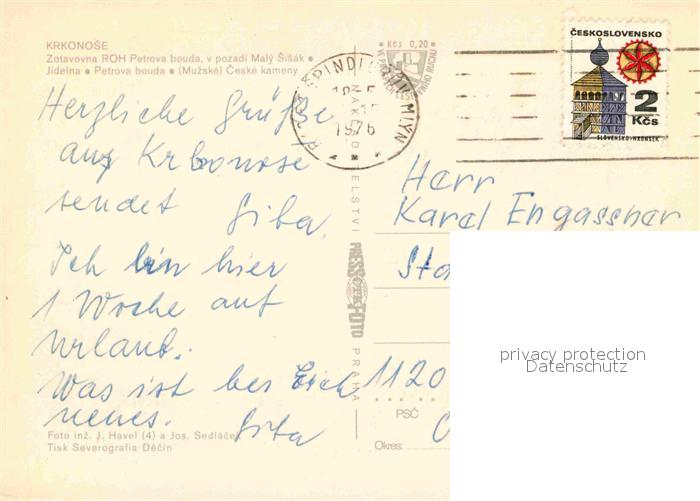 KRKONOŠE
Zotavovna ROH Petrova bouda, v pozadí Malý Šišák •
Jídelna • Petrova bouda • (Mužské) České kameny
Herzliche Grüße
aus Krkonose
sendet Jitka.
Ich bin hier
1 Woche auf
Urlaub.
Was ist bei Euch
neues. Jitka
Foto inž. J. Havel (4) a Jos. Sedláček
Tisk Severografia Děčín
Kčs 0,20
ŠPINDLERŮV MLÝN
1976
NAKLADATELSTVÍ
PRESSFOTO
PRAHA
ČESKOSLOVENSKO
2
Kčs
SLOVENSKO-HRONSEK
Herr
Karel Engassner
Sta
1120
PSČ
Okres:
privacy protection
Datenschutz